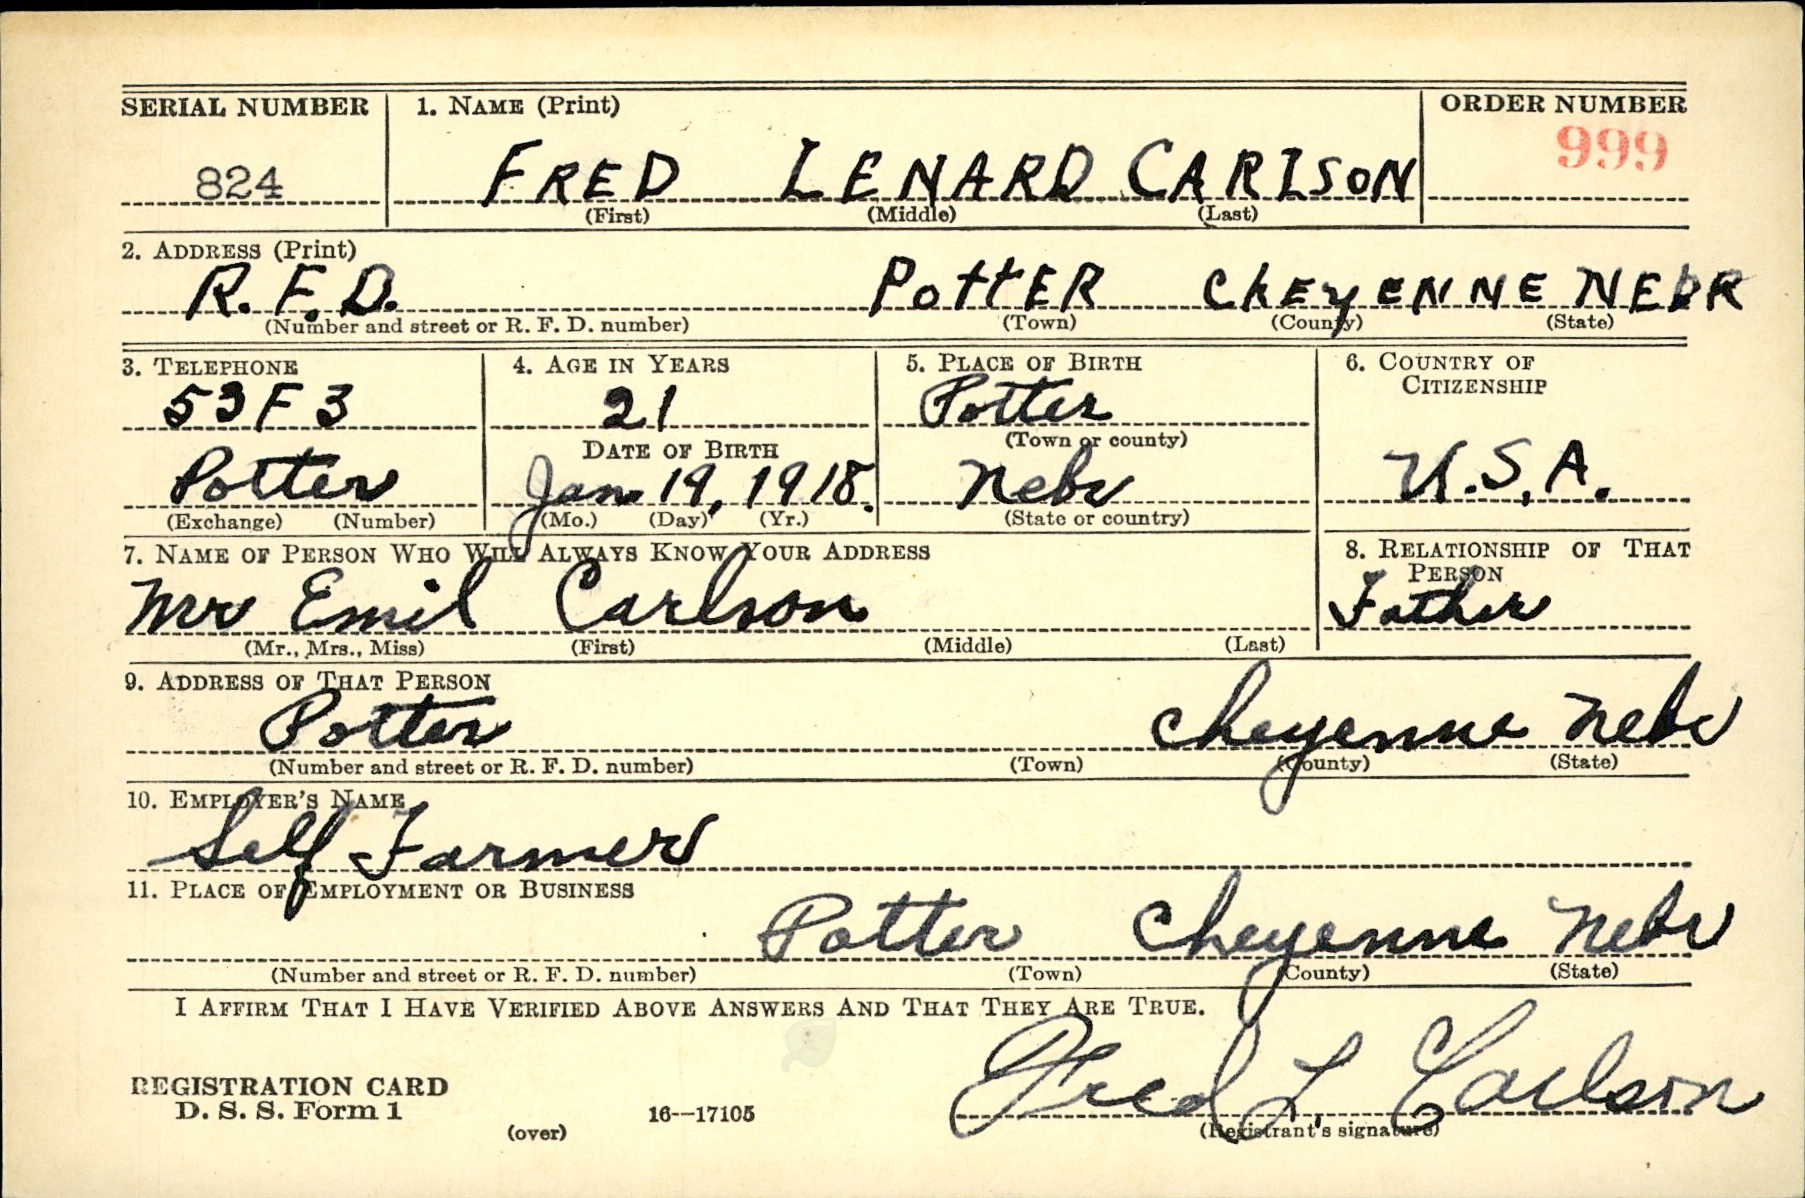 SERIAL NUMBER 1. NAME (Print) ORDER NUMBER
824 FRED LENARD CARLSON 999
(First) (Middle) (Last)
2. ADDRESS (Print)
R. F. D. POttER ChEyENNE NEbR
(Number and street or R. F. D. number) (Town) (County) (State)
3. TELEPHONE 4. AGE IN YEARS 5. PLACE OF BIRTH 6. COUNTRY OF CITIZENSHIP
53F3 21 Potter
DATE OF BIRTH (Town or county)
Potter Jan 19, 1918. Nebr U.S.A.
(Exchange) (Number) (Mo.) (Day) (Yr.) (State or country)
7. NAME OF PERSON WHO WILL ALWAYS KNOW YOUR ADDRESS 8. RELATIONSHIP OF THAT PERSON
Mr Emil Carlson Father
(Mr., Mrs., Miss) (First) (Middle) (Last)
9. ADDRESS OF THAT PERSON
Potter Cheyenne Nebr
(Number and street or R. F. D. number) (Town) (County) (State)
10. EMPLOYER'S NAME
Self Farmer
11. PLACE OF EMPLOYMENT OR BUSINESS
Potter Cheyenne Nebr
(Number and street or R. F. D. number) (Town) (County) (State)
I AFFIRM THAT I HAVE VERIFIED ABOVE ANSWERS AND THAT THEY ARE TRUE.
Fred L. Carlson
(Registrant's signature)
REGISTRATION CARD
D. S. S. Form 1
(over) 16—17105